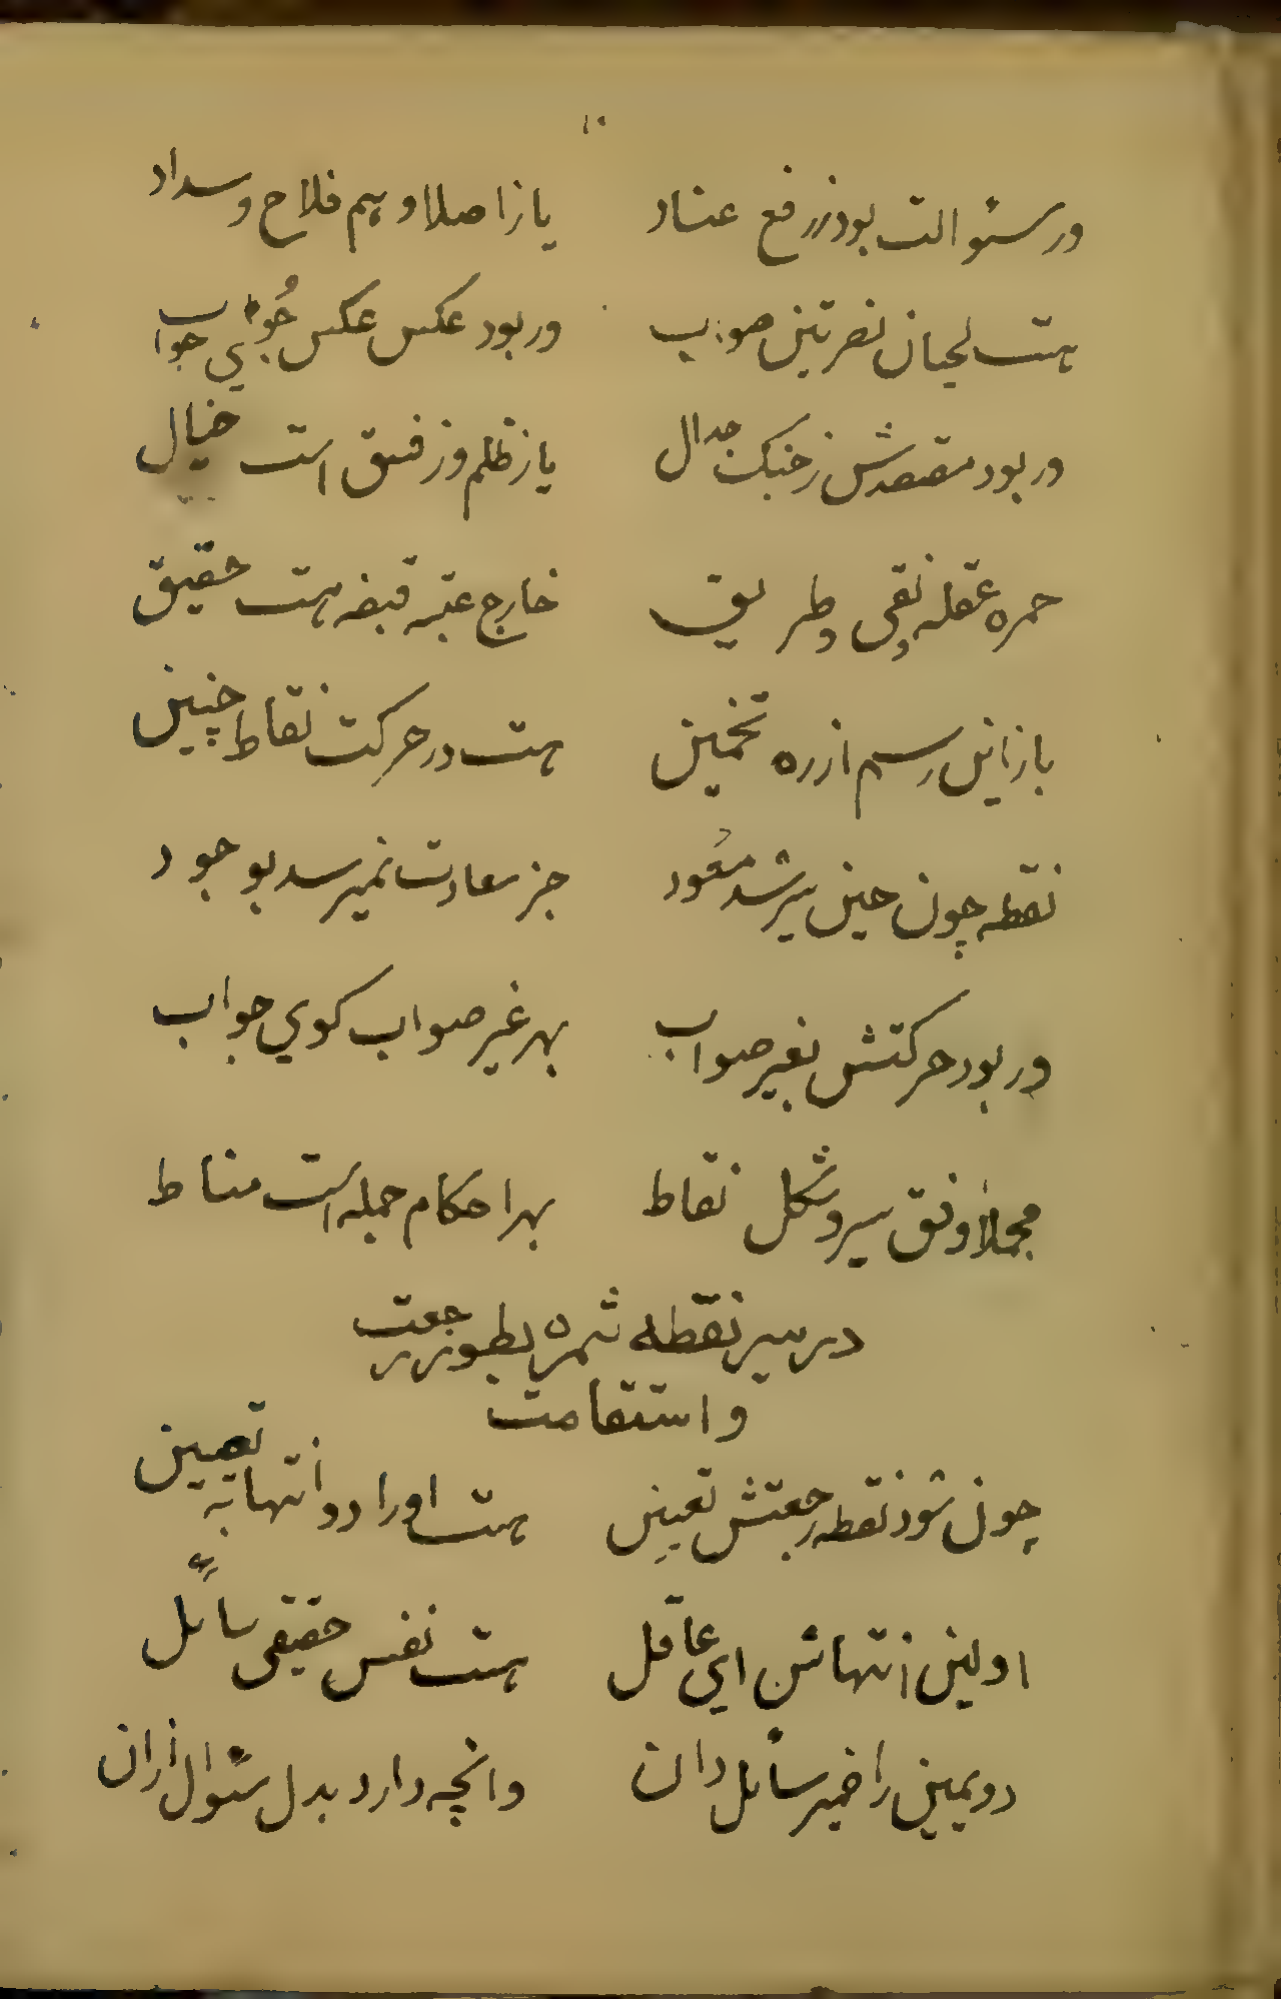 ۱۰
ور سئوالت بود ز رفع عناد یا ز اصلا و بهم فلاح و سداد
هست لحیان نصرتین صواب ور بود عکس عکس جوی جواب
ور بود مقصدش ز جنک جدال یا ز ظلم و ز فسق است خیال
حمره عقله نقی و طریق خارج عتبه قبضه هست حقیق
باز این رسم از ره تخمین هست در حرکت نقاط چنین
نقطه چون حین سیر شد مسعود جز سعادت نمیرسد بوجود
ور بود حرکتش بغیر صواب بهر غیر صواب کوی جواب
مجملا وفق سیر و شکل نقاط بهر احکام جمله است مناط
در سیر نقطه ثمره بطور رجعت
و استقامت
چون شود نقطه رجعتش تعیین هست او را دو انتها به
اولین انتهاش ای عاقل هست نفس حقیقی سائل
دویمین را ضمیر سائل دان وانچه دارد بدل سئوال از آن